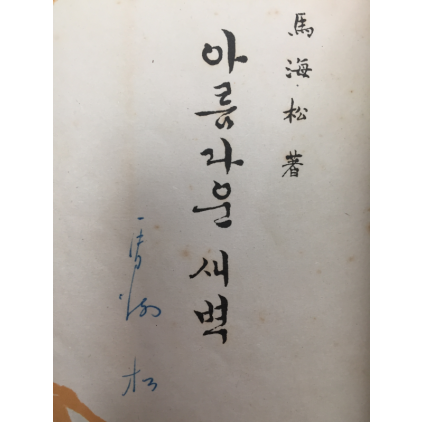 馬海松 著
아름다운 새벽
馬海松